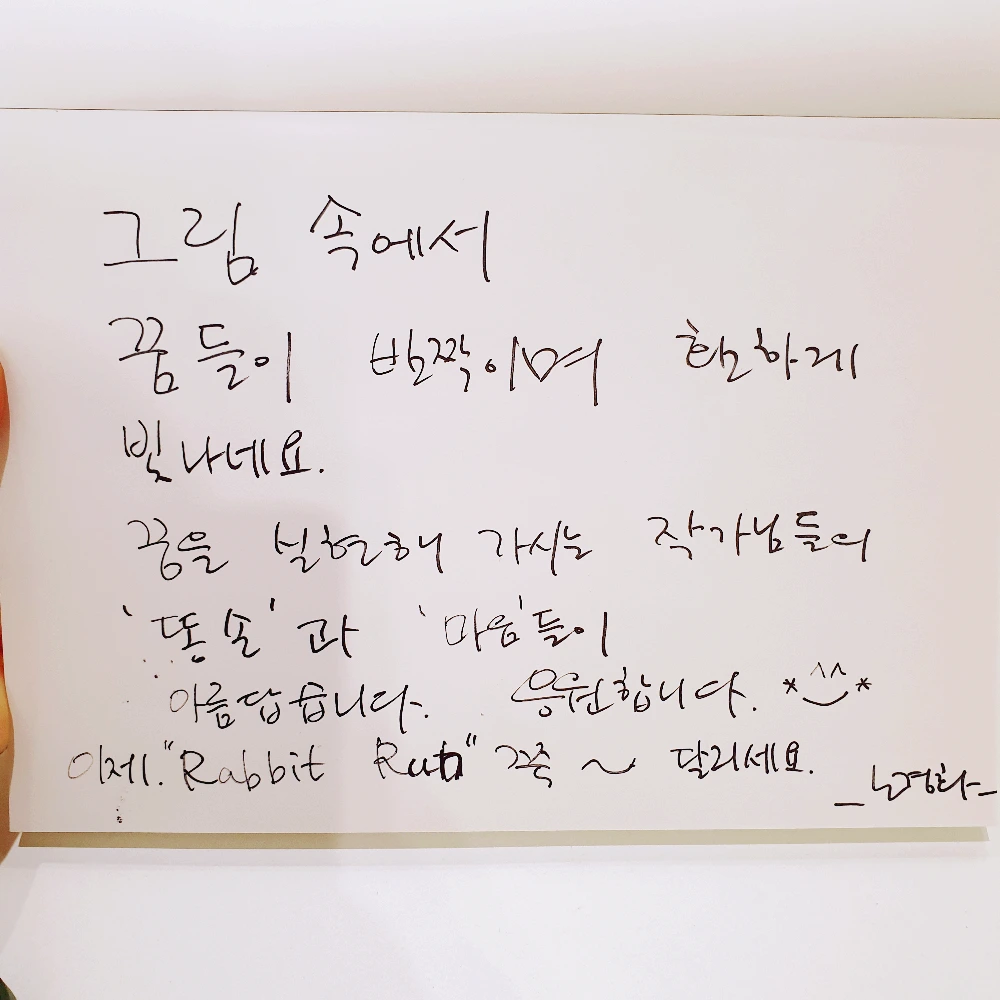 그림 속에서
꿈들이 반짝이며 환하게
빛나네요.
꿈을 실현해 가시는 작가님들의
'똥손'과 '마음'들이
아름답습니다. 응원합니다. *^^*
이제. "Rabbit Run" 쭉 ~ 달리세요.
_노경화_